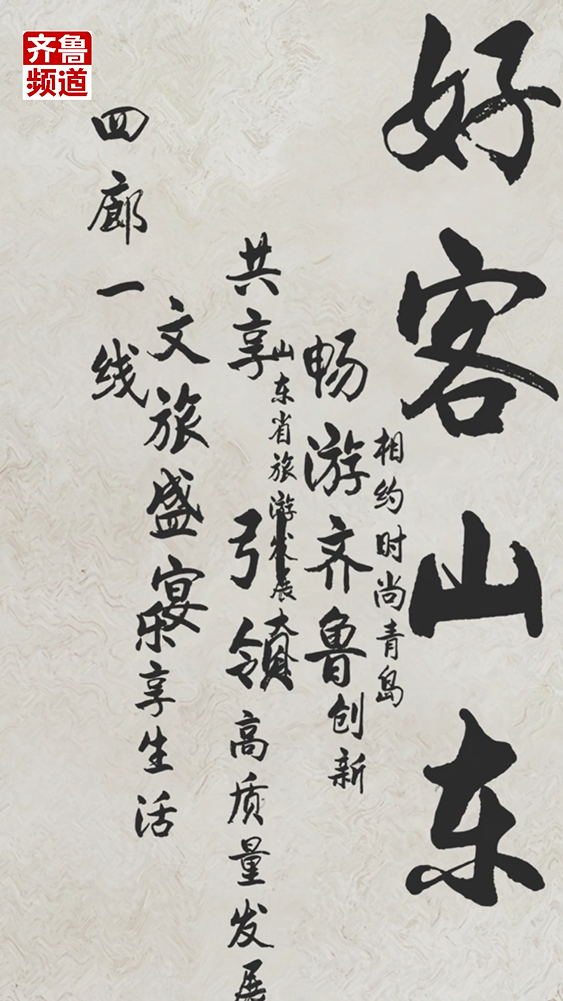 齐鲁
频道
好客山东
相约时尚青岛
畅游齐鲁
创新
山东省旅游发展
共享
引领
高质量发展
文旅盛宴
乐享生活
四廊一线